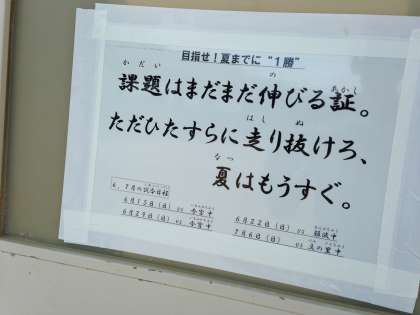 目指せ！夏までに“１勝”
かだい の あかし
課題はまだまだ伸びる証。
はし ぬ
ただひたすらに走り抜けろ、
なつ
夏はもうすぐ。
６、７月の試合日程
６月１５日（日） vs 今宮中
６月２２日（日） vs
６月２９日（日） vs 今宮中
７月６日（日） vs 文の里中